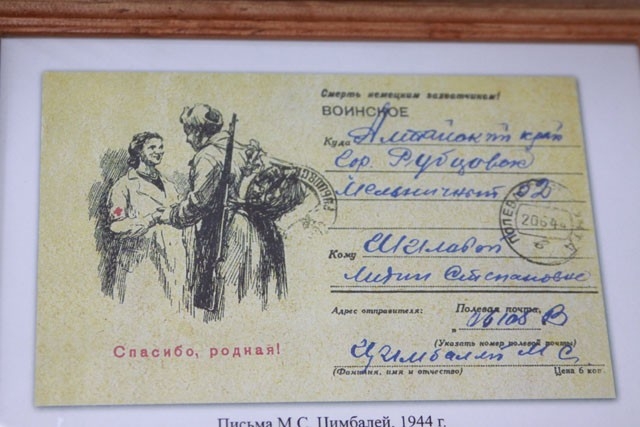 Смерть немецким захватчикам!
ВОИНСКОЕ
Куда Алтайский край
гор. Рубцовск
Мельничная 52
ПОЛЕВАЯ
20 6 44
Кому
Лидии Степановне
Адрес отправителя: Полевая почта,
В
(Указать номер полевой почты)
Цымбалей М С.
(Фамилия, имя и отчество) Цена 6 коп.
Спасибо, родная!
Письма М.С. Цимбалей, 1944 г.